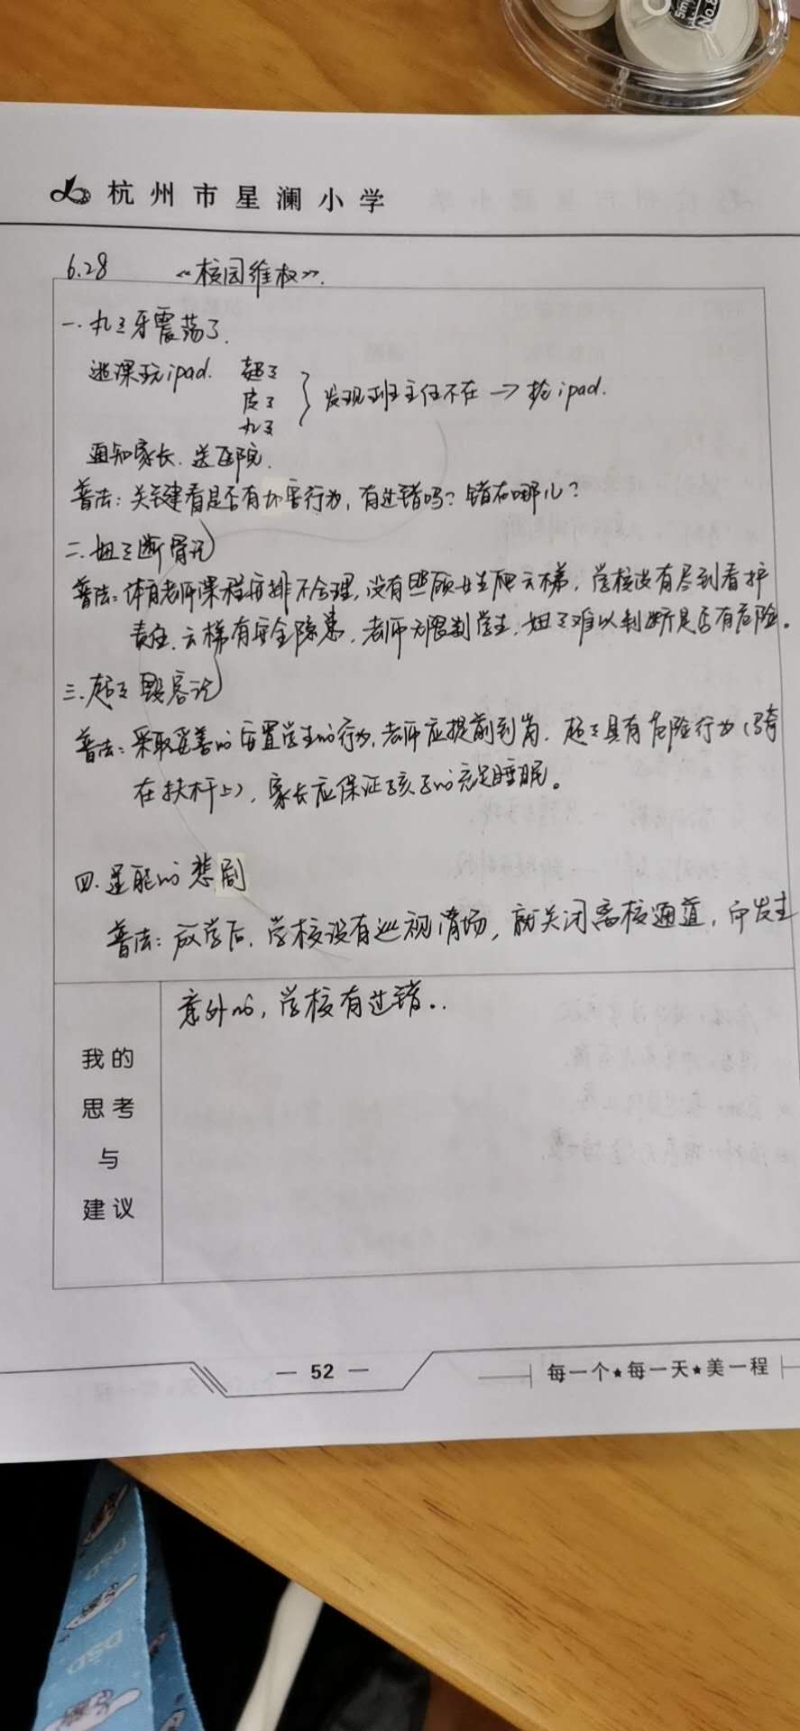 杭州市星澜小学
6.28 《校园维权》
一、丸子牙震荡了.
逃课玩ipad. 超子
皮子
丸子
} 发现班主任不在 → 抢ipad.
通知家长.送医院.
普法:关键看是否有加害行为,有过错吗?错在哪儿?
二.妞子断骨记
普法:体育老师课程安排不合理,没有照顾女生爬云梯,学校没有尽到看护
责任.云梯有安全隐患,老师无限制学生.妞子难以判断是否有危险。
三.超子毁容记
普法:采取妥善的安置学生的行为,老师应提前到岗.超子具有危险行为(骑
在扶杆上),家长应保证孩子的充足睡眠。
四.逞能的悲剧
普法:放学后,学校没有巡视清场,就关闭离校通道,而发生
意外的,学校有过错..
我的
思考
与
建议
— 52 —
每一个★每一天★美一程